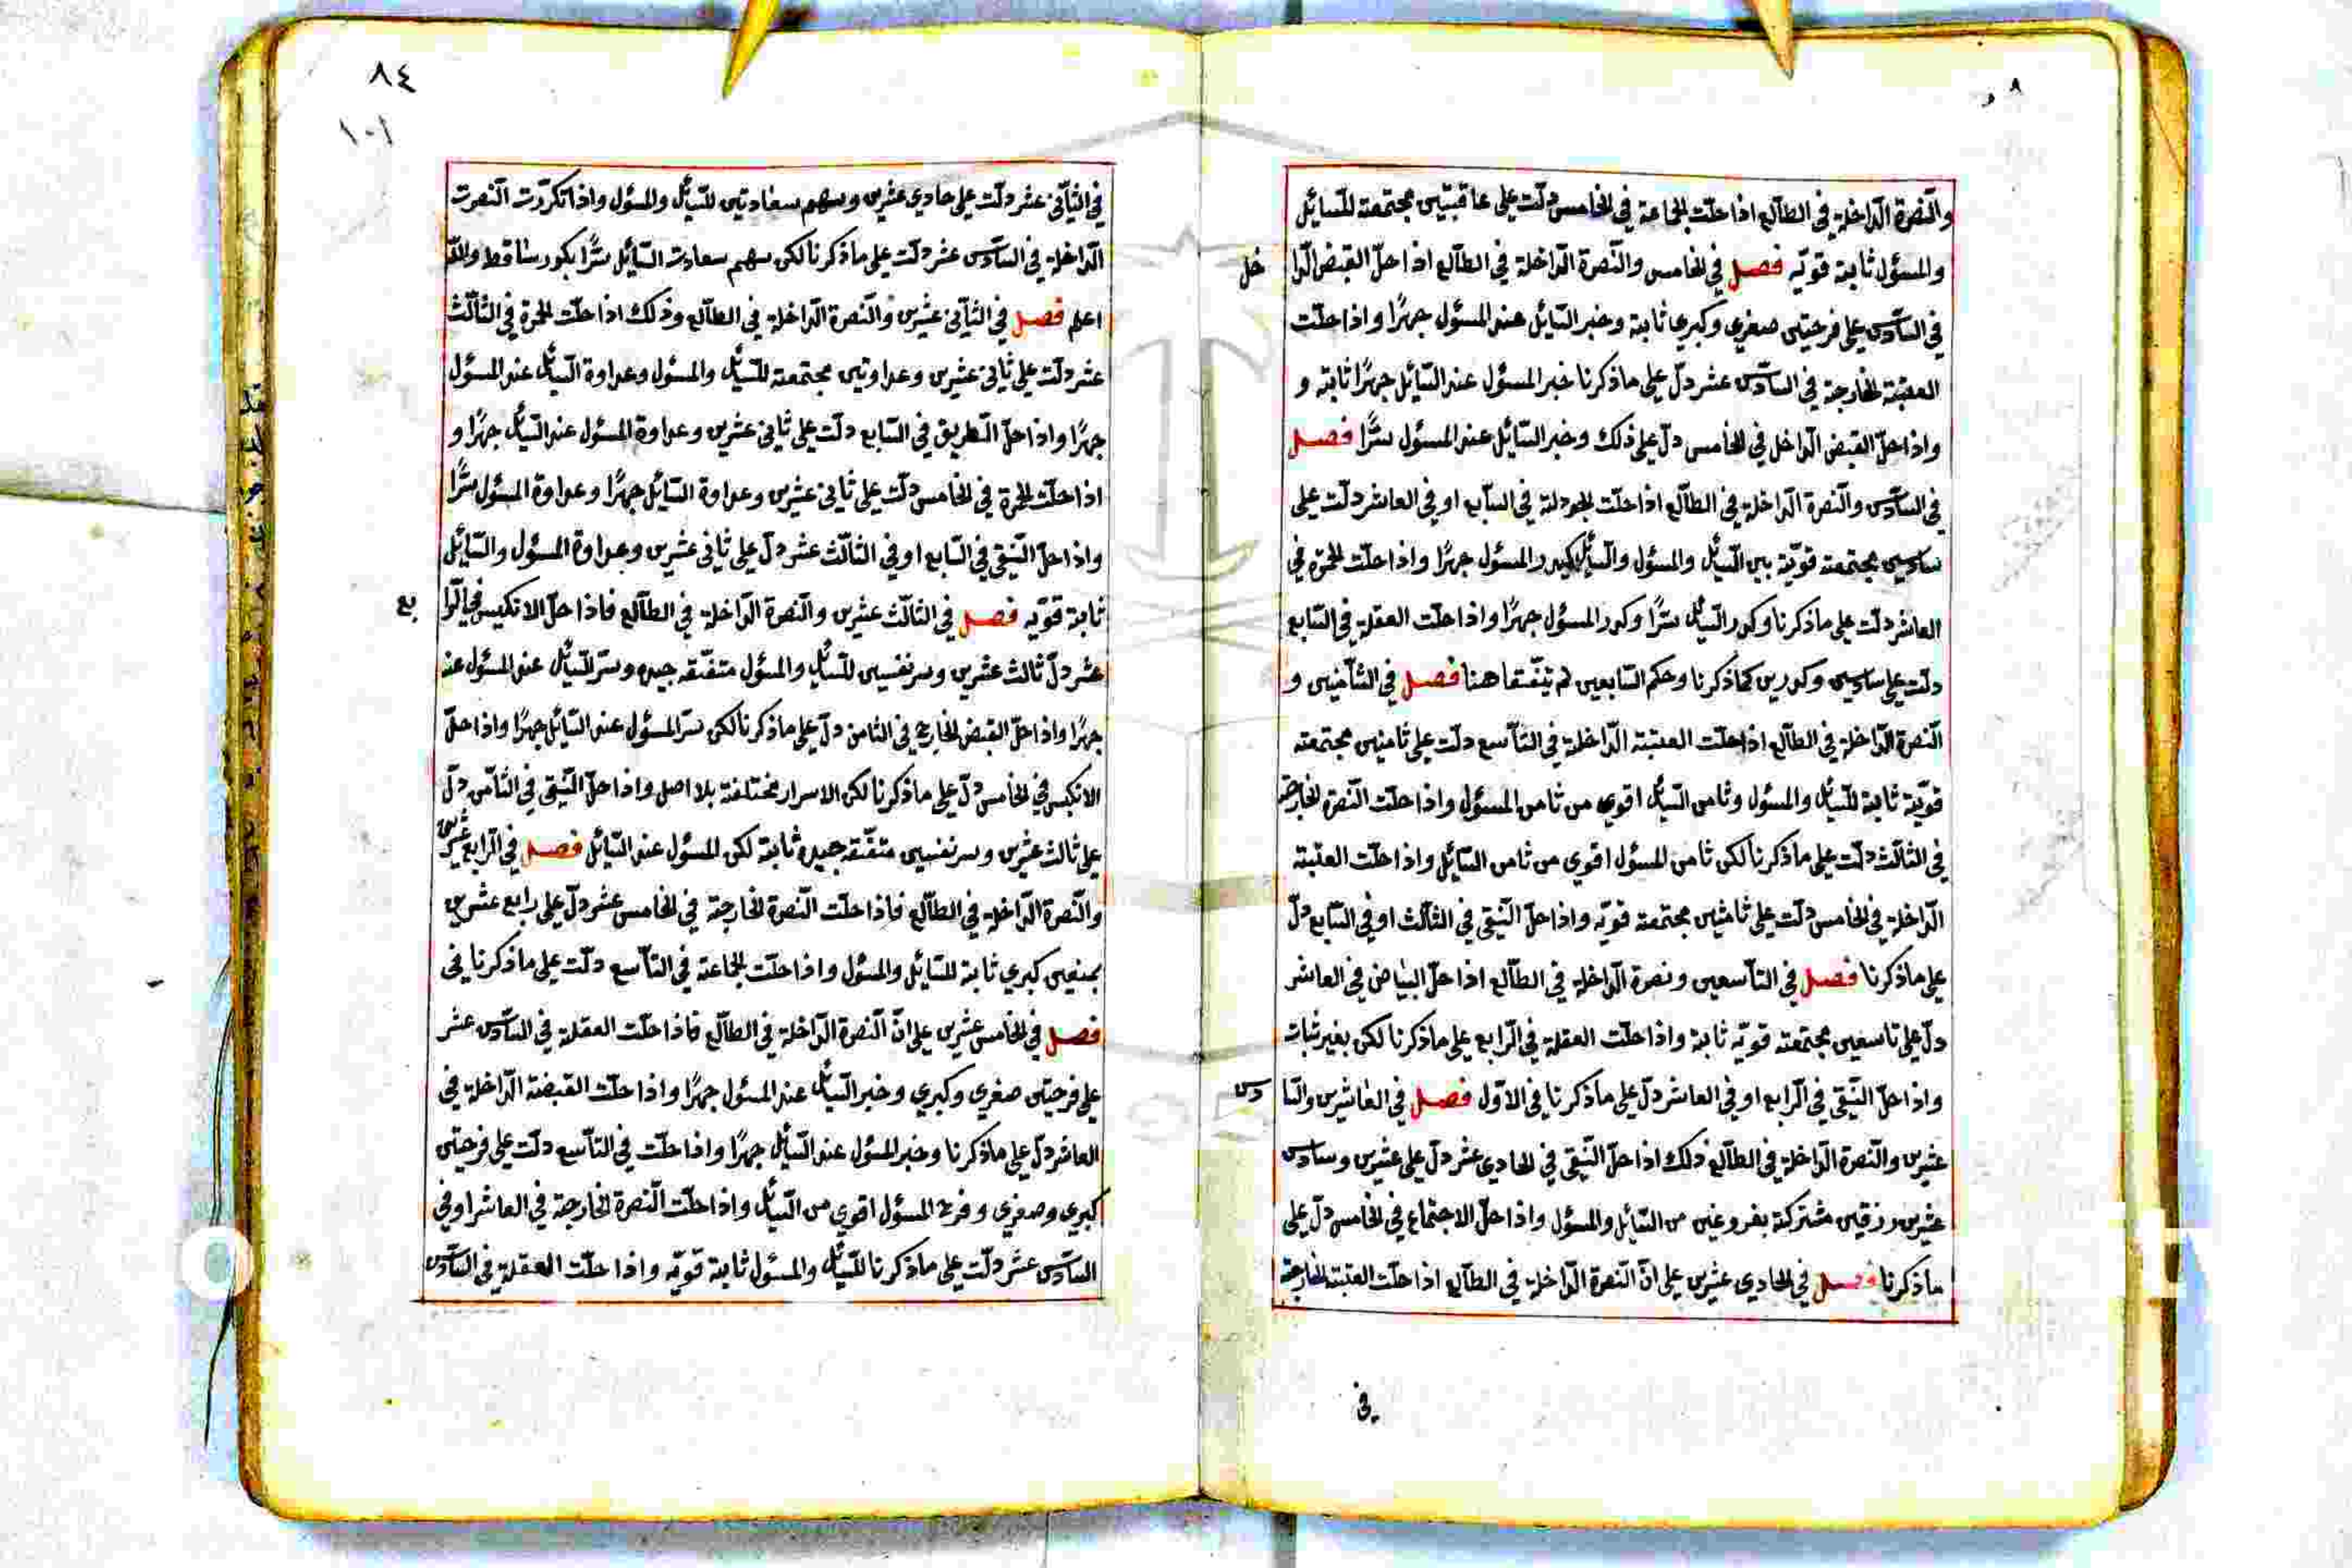 والنصرة الداخلة في الطالع اذا حلت الجماعة في الخامس دلت على عاقبتين مجتمعة للسائل
والمسؤل ثابتة قويه فصل في الخامس والنصرة الداخلة في الطالع اذا حل القبض الدا
خل
في السادس على فرحتين صغري وكبري ثابتة وخبر السائل عند المسؤل جهرًا واذا حلت
العتبة الخارجة في السادس عشر دل على ماذكرنا خبر المسؤل عند السائل جهرًا ثابته و
واذا حل القبض الداخل في الخامس دل على ذلك وخبر السائل عند المسؤل سرًّا فصل
في السادس والنصرة الداخلة في الطالع اذا حلت الجودلة في السابع او في العاشر دلت على
مجتمعة قويّة بين السائل والمسؤل والمسؤل جهرًا واذا حلت الحمرة في
العاشر دلت على ماذكرنا وكدر السائل سرًّا وكدر المسؤل جهرًا واذا حلت العقلة في السابع
دلت على وكدرين كماذكرنا وحكم السابعين لم يتفقا هنا فصل في الثامنين و
النصرة الداخلة في الطالع اذا حلت العتبة الداخلة في التاسع دلت على ثامنين مجتمعته
قويّة ثابتة للسائل والمسؤل وثامن السائل اقوي من ثامن المسؤل واذا حلت النصرة الخارجة
في الثالث دلت على ماذكرنا لكن ثامن المسؤل اقوي من ثامن السائل واذا حلت العتبة
الداخلة في الخامس دلت على ثامنين مجتمعته قويّه واذا حل النقي في الثالث او في السابع دل
على ماذكرنا فصل في التاسعين ونصرة الداخلة في الطالع اذا حل البياض في العاشر
دل على تاسعين مجتمعته قويّه ثابتة واذا حلت العقلة في الرابع على ماذكرنا لكن بغير ثبات
واذا حل النقي في الرابع او في العاشر دل على ماذكرنا في الاول فصل في العاشرين والسا
دس
عشرين والنصرة الداخلة في الطالع ذلك اذا حل النقي في الحادي عشر دل على عشرين وسادس
عشرين رزقين مشتركة بفروغين من السائل والمسؤل واذا حل الاجتماع في الخامس دل على
ماذكرنا فصل في الحادي عشرين على ان النصرة الداخلة في الطالع اذا حلت العتبة الخارجة
في
٨٤
١٠١
في الثاني عشر دلت على حادي عشرين وسهم سعادتين للسائل والمسؤل واذا تكررت النصرت
الداخلة في السادس عشر دلت على ماذكرنا لكن سهم سعادت السائل سرًّا بكدر ساقط والله
اعلم فصل في الثاني عشرين والنصرة الداخلة في الطالع وذلك اذا حلت الحمرة في الثالث
عشر دلت على ثاني عشرين وعداوتين مجتمعته للسائل والمسؤل وعداوة السائل عند المسؤل
جهرًا واذا حل الطريق في السابع دلت على ثاني عشرين وعداوة المسؤل عند السائل جهرًا و
اذا حلت الحمرة في الخامس دلت على ثاني عشرين وعداوة السائل جهرًا وعداوة المسؤل سرًّا
واذا حل النقي في السابع او في الثالث عشر دل على ثاني عشرين وعداوة المسؤل والسائل
ثابتة قويّه فصل في الثالث عشرين والنصرة الداخلة في الطالع فاذا حل الانكيس في الرا
بع
عشر دل ثالث عشرين وسر نفسين للسائل والمسؤل متفقه جيده وسر للسائل عند المسؤل عند
جهرًا واذا حل القبض الخارج في الثامن دل على ماذكرنا لكن سر المسؤل عند السائل جهرًا واذا حل
الانكيس في الخامس دل على ماذكرنا لكن الاسرار مختلفة بلا اصل واذا حل النقي في الثامن دل
على ثالث عشرين وسر نفسين متفقه جيده ثابتة لكن للمسؤل عند السائل فصل في الرابع عشرين
والنصرة الداخلة في الطالع فاذا حلت النصرة الخارجة في الخامس عشر دل على رابع عشرين
كبري ثابتة للسائل والمسؤل واذا حلت الجماعة في التاسع دلت على ماذكرنا في
فصل في الخامس عشرين على ان النصرة الداخلة في الطالع فاذا حلت العقلة في السادس عشر
على فرحتين صغري وكبري وخبر السائل عند المسؤل جهرًا واذا حلت القبضة الداخلة في
العاشر دل على ماذكرنا وخبر المسؤل عند السائل جهرًا واذا حلت في التاسع دلت على فرحتين
كبري وصغري وفرح المسؤل اقوي من السائل واذا حلت النصرة الخارجة في العاشر او في
السادس عشر دلت على ماذكرنا للسائل والمسؤل ثابتة قويّه واذا حلت العقلة في السادس